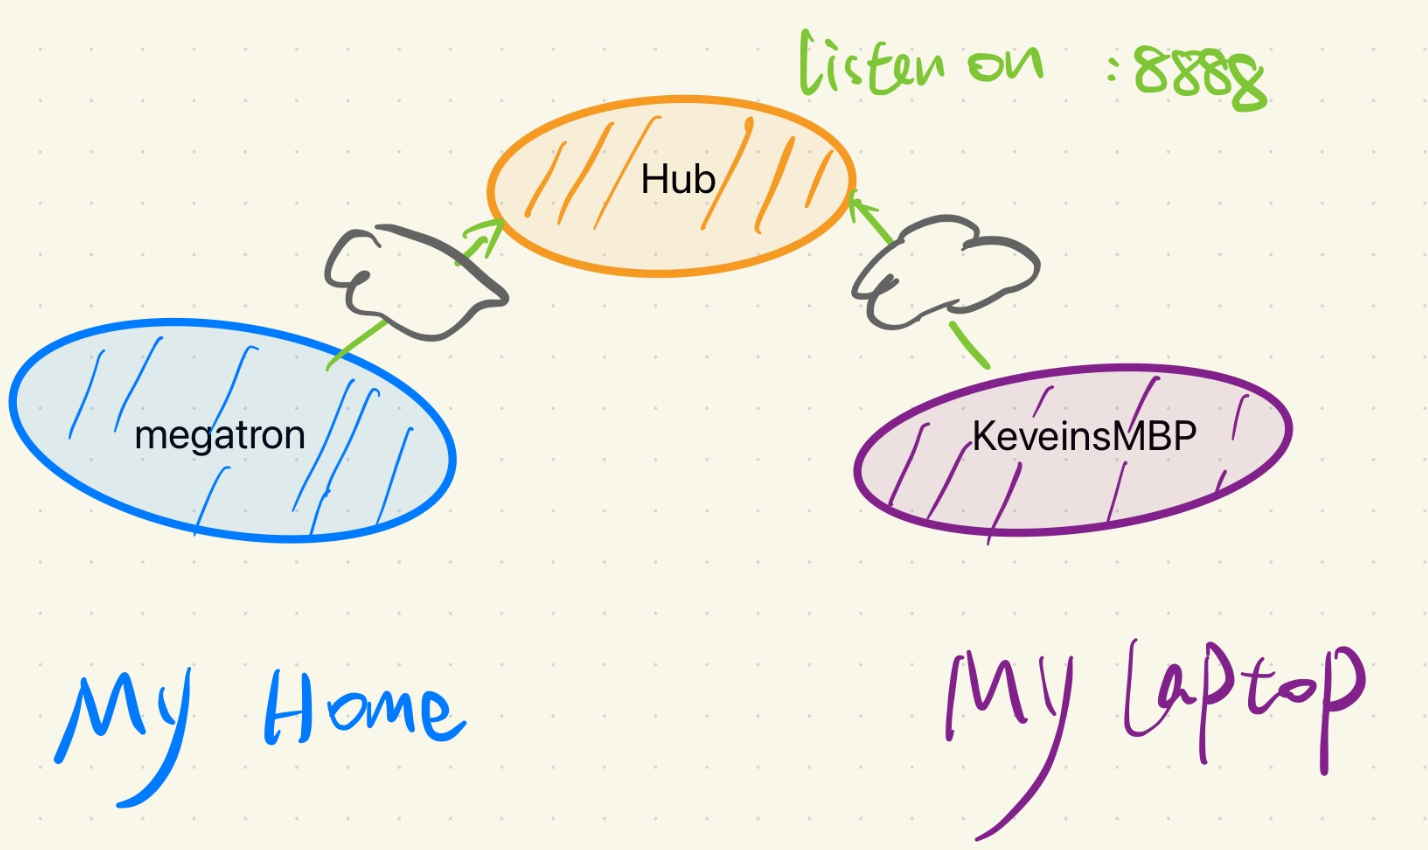 listen on :8888
Hub
megatron
KeveinsMBP
My Home
My Laptop